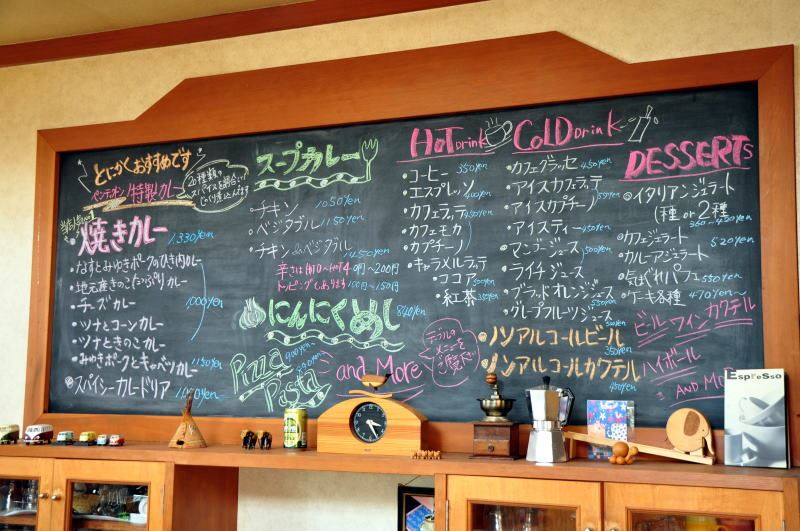 とにかくおすすめです
ペンティオン特製カレー
20種類の
スパイスを調合し
じっくり煮こんでます
焼きカレー 1330yen
・なすとみゆきポークのひき肉カレー
・地元産きのこたっぷりカレー
・チーズカレー
1000yen
・ツナとコーンカレー
・ツナときのこカレー
・みゆきポークとキャベツカレー 1150yen
◎スパイシーカレードリア
スープカレー
・チキン 1050yen
・ベジタブル 1150yen
・チキン&ベジタブル 1450yen
トッピングもあります 100~150円
にんにくめし 840yen
Pizza 900yen~
Pasta
and More
テーブルの
メニューを
ご覧下さい
HoT Drink
・コーヒー 350yen
・エスプレッソ 400yen
・カフェラッテ 450yen
・カフェモカ
・カプチーノ
・キャラメルラッテ
・ココア 300yen
・紅茶 350yen
CoLD Drink
・カフェグラッセ 450yen
・アイスカフェラッテ
・アイスカプチーノ
550yen
・アイスティー 450yen
・マンゴージュース
・ライチジュース
500yen
・ブラッドオレンジジュース
・グレープフルーツジュース 550yen
・ノンアルコールビール
・ノンアルコールカクテル 450yen
DESSERTs
◎イタリアンジェラート
(1種 or 2種
360~450yen
・カフェジェラート
・カルーアジェラート
520yen
・気まぐれパフェ 550yen
・ケーキ各種 470yen~
ビール・ワイン カクテル
ハイボール
AND MO
EspReSSo